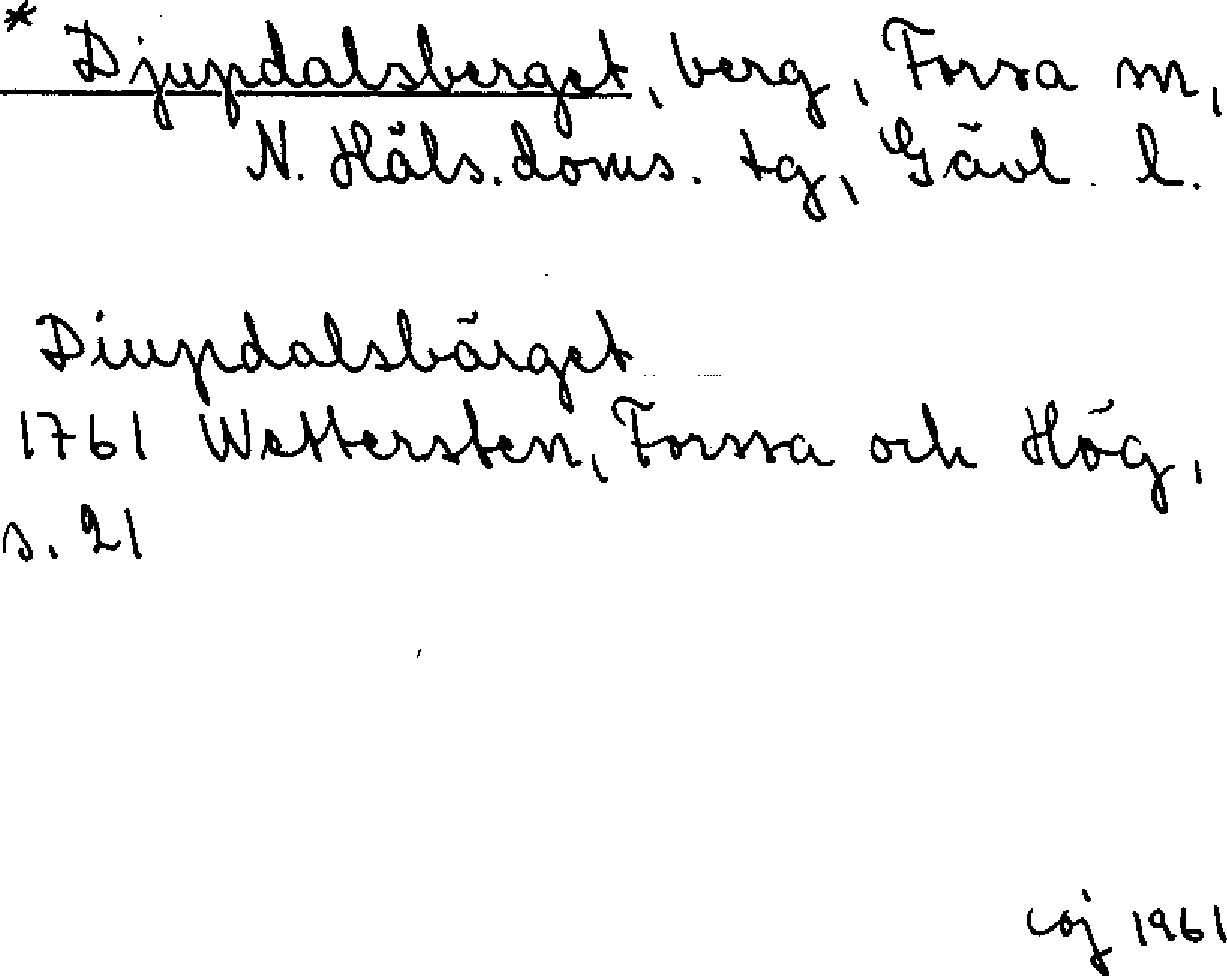 * Djupdalsberget, berg, Forsa sn,
N. Häls. doms. tg, Gävl. l.
Diupdalsbärget
1761 Wettersten, Forssa och Hög,
s. 21
coj 1961